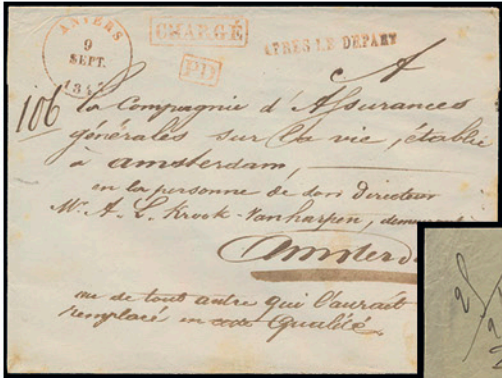 ANVERS
9
SEPT.
184
CHARGÉ
PD
APRÈS LE DÉPART
A
106
la Compagnie d'Assurances
générales sur la vie, établie
à amsterdam,
en la personne de son Directeur
Mr. A. L. Krook-Vanharpen,
Amsterd
ou de tout autre qui l'aurait
remplacé en cette qualité.